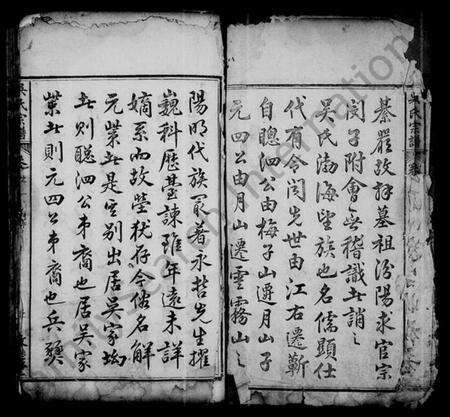 故拜墓祖汾陽求官宗
閔子附會無稽識者誚之
吳氏渤海望族也名儒顯仕
代有令聞先世由江右遷蘄
自聰泗公由梅子山遷月山子
元四公由月山遷雲霧山之
陽明代族著永哲先生擢
巍科歷臺諫雖年遠未詳
嫡系而故塋猶存今儒名解
元業者是別出居吳家坳
者則聰泗公弟裔也居吳家
業者則元四公弟裔也兵燹
吳氏宗譜
吳氏宗譜 卷
Search International